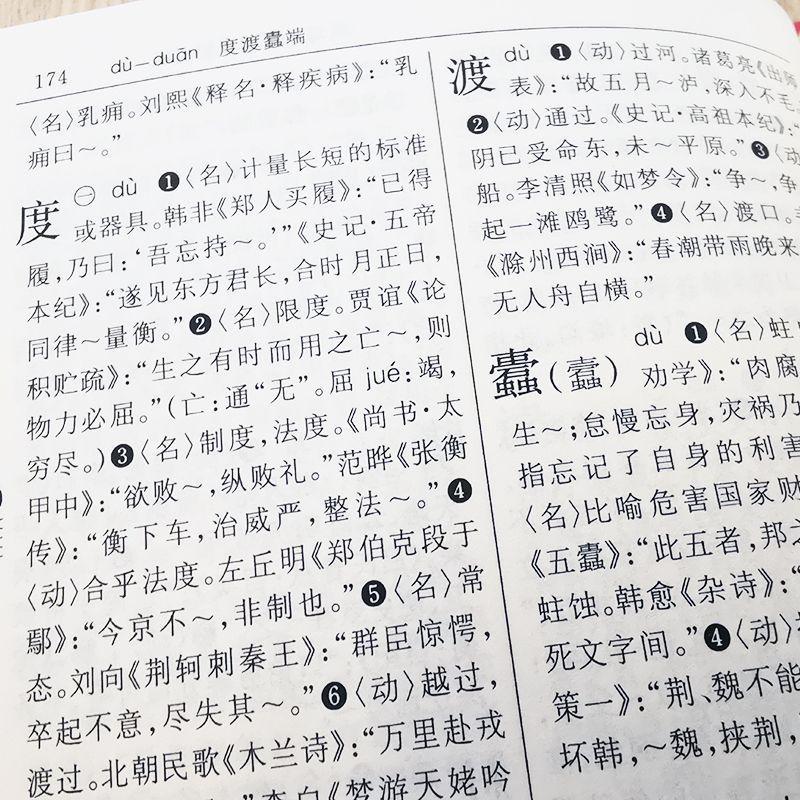 174 dù—duān 度渡蠹端
〈名〉乳痈。刘熙《释名·释疾病》：“乳
痈曰～。”
度 ㊀ dù ❶〈名〉计量长短的标准
或器具。韩非《郑人买履》：“已得
履，乃曰：‘吾忘持～。’”《史记·五帝
本纪》：“遂见东方君长，合时月正日，
同律～量衡。”❷〈名〉限度。贾谊《论
积贮疏》：“生之有时而用之亡～，则
物力必屈。”（亡：通“无”。屈 jué：竭，
穷尽。）❸〈名〉制度，法度。《尚书·太
甲中》：“欲败～，纵败礼。”范晔《张衡
传》：“衡下车，治威严，整法～。”❹
〈动〉合乎法度。左丘明《郑伯克段于
鄢》：“今京不～，非制也。”❺〈名〉常
态。刘向《荆轲刺秦王》：“群臣惊愕，
卒起不意，尽失其～。”❻〈动〉越过，
渡过。北朝民歌《木兰诗》：“万里赴戎
李白《梦游天姥吟
渡 dù ❶〈动〉过河。诸葛亮《出师
表》：“故五月～泸，深入不毛。
❷〈动〉通过。《史记·高祖本纪》：“
阴已受命东，未～平原。”❸〈动
船。李清照《如梦令》：“争～，争
起一滩鸥鹭。”❹〈名〉渡口。
《滁州西涧》：“春潮带雨晚来
无人舟自横。”
蠹（蠧） dù ❶〈名〉蛀
劝学》：“肉腐
生～；怠慢忘身，灾祸乃
指忘记了自身的利害
〈名〉比喻危害国家财
《五蠹》：“此五者，邦之
蛀蚀。韩愈《杂诗》：“
死文字间。”❹〈动〉
策一》：“荆、魏不能
坏韩，～魏，挟荆，